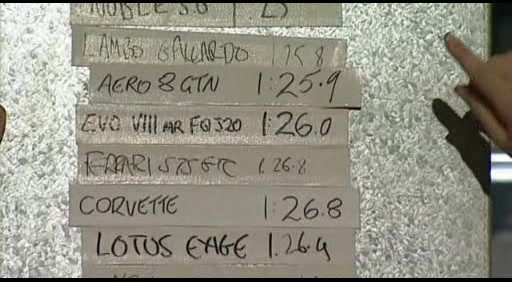 NOBLE
LAMBO GALLARDO 1.25.8
AERO 8 GTN 1:25.9
EVO VIII MR FQ320 1:26.0
FERRARI 575 GTC 1.26.8
CORVETTE 1:26.8
LOTUS EXIGE 1.26.9